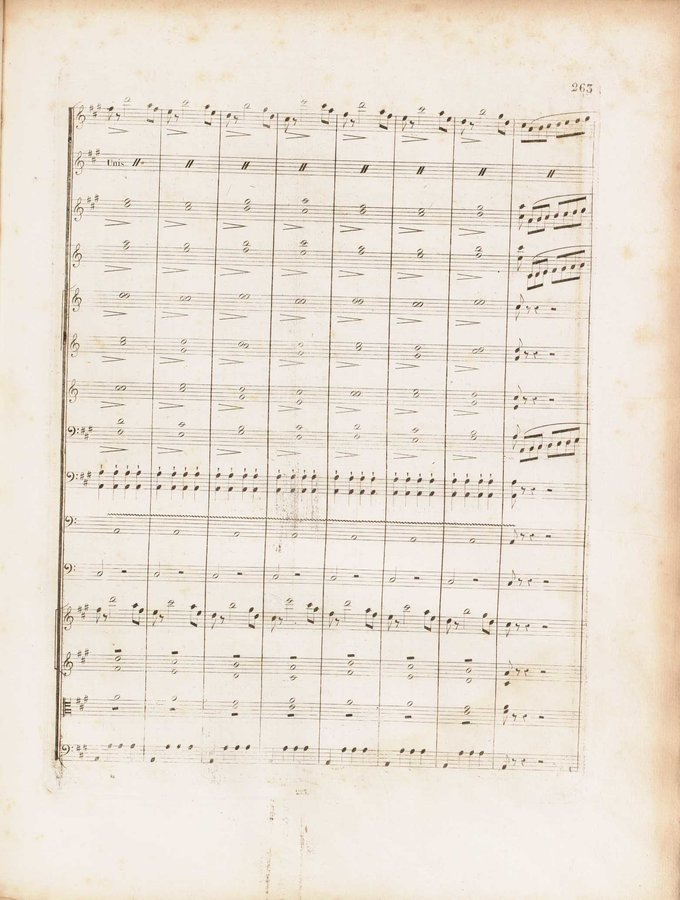 265
Unis.